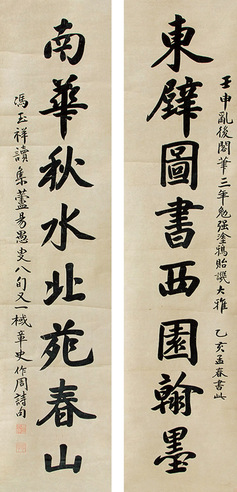 壬申亂後閣筆三年勉強塗鴉貽譏大雅 乙亥孟春書此
東壁圖書西園翰墨
南華秋水北苑春山
讀集 八句又一 章史作周詩句